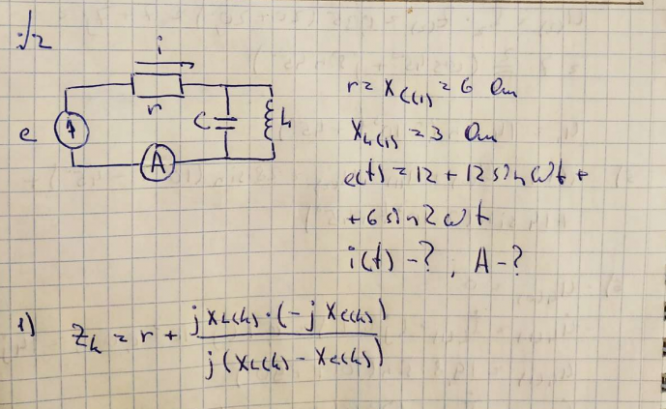 √2
i
r
e
C
L
A
r = X_C(1) = 6 Ом
X_L(1) = 3 Ом
e(t) = 12 + 12 sin ωt +
+ 6 sin 2ωt
i(t) - ? , A - ?
1) Z_k = r + jX_L(k) · (-jX_C(k)) / j(X_L(k) - X_C(k))